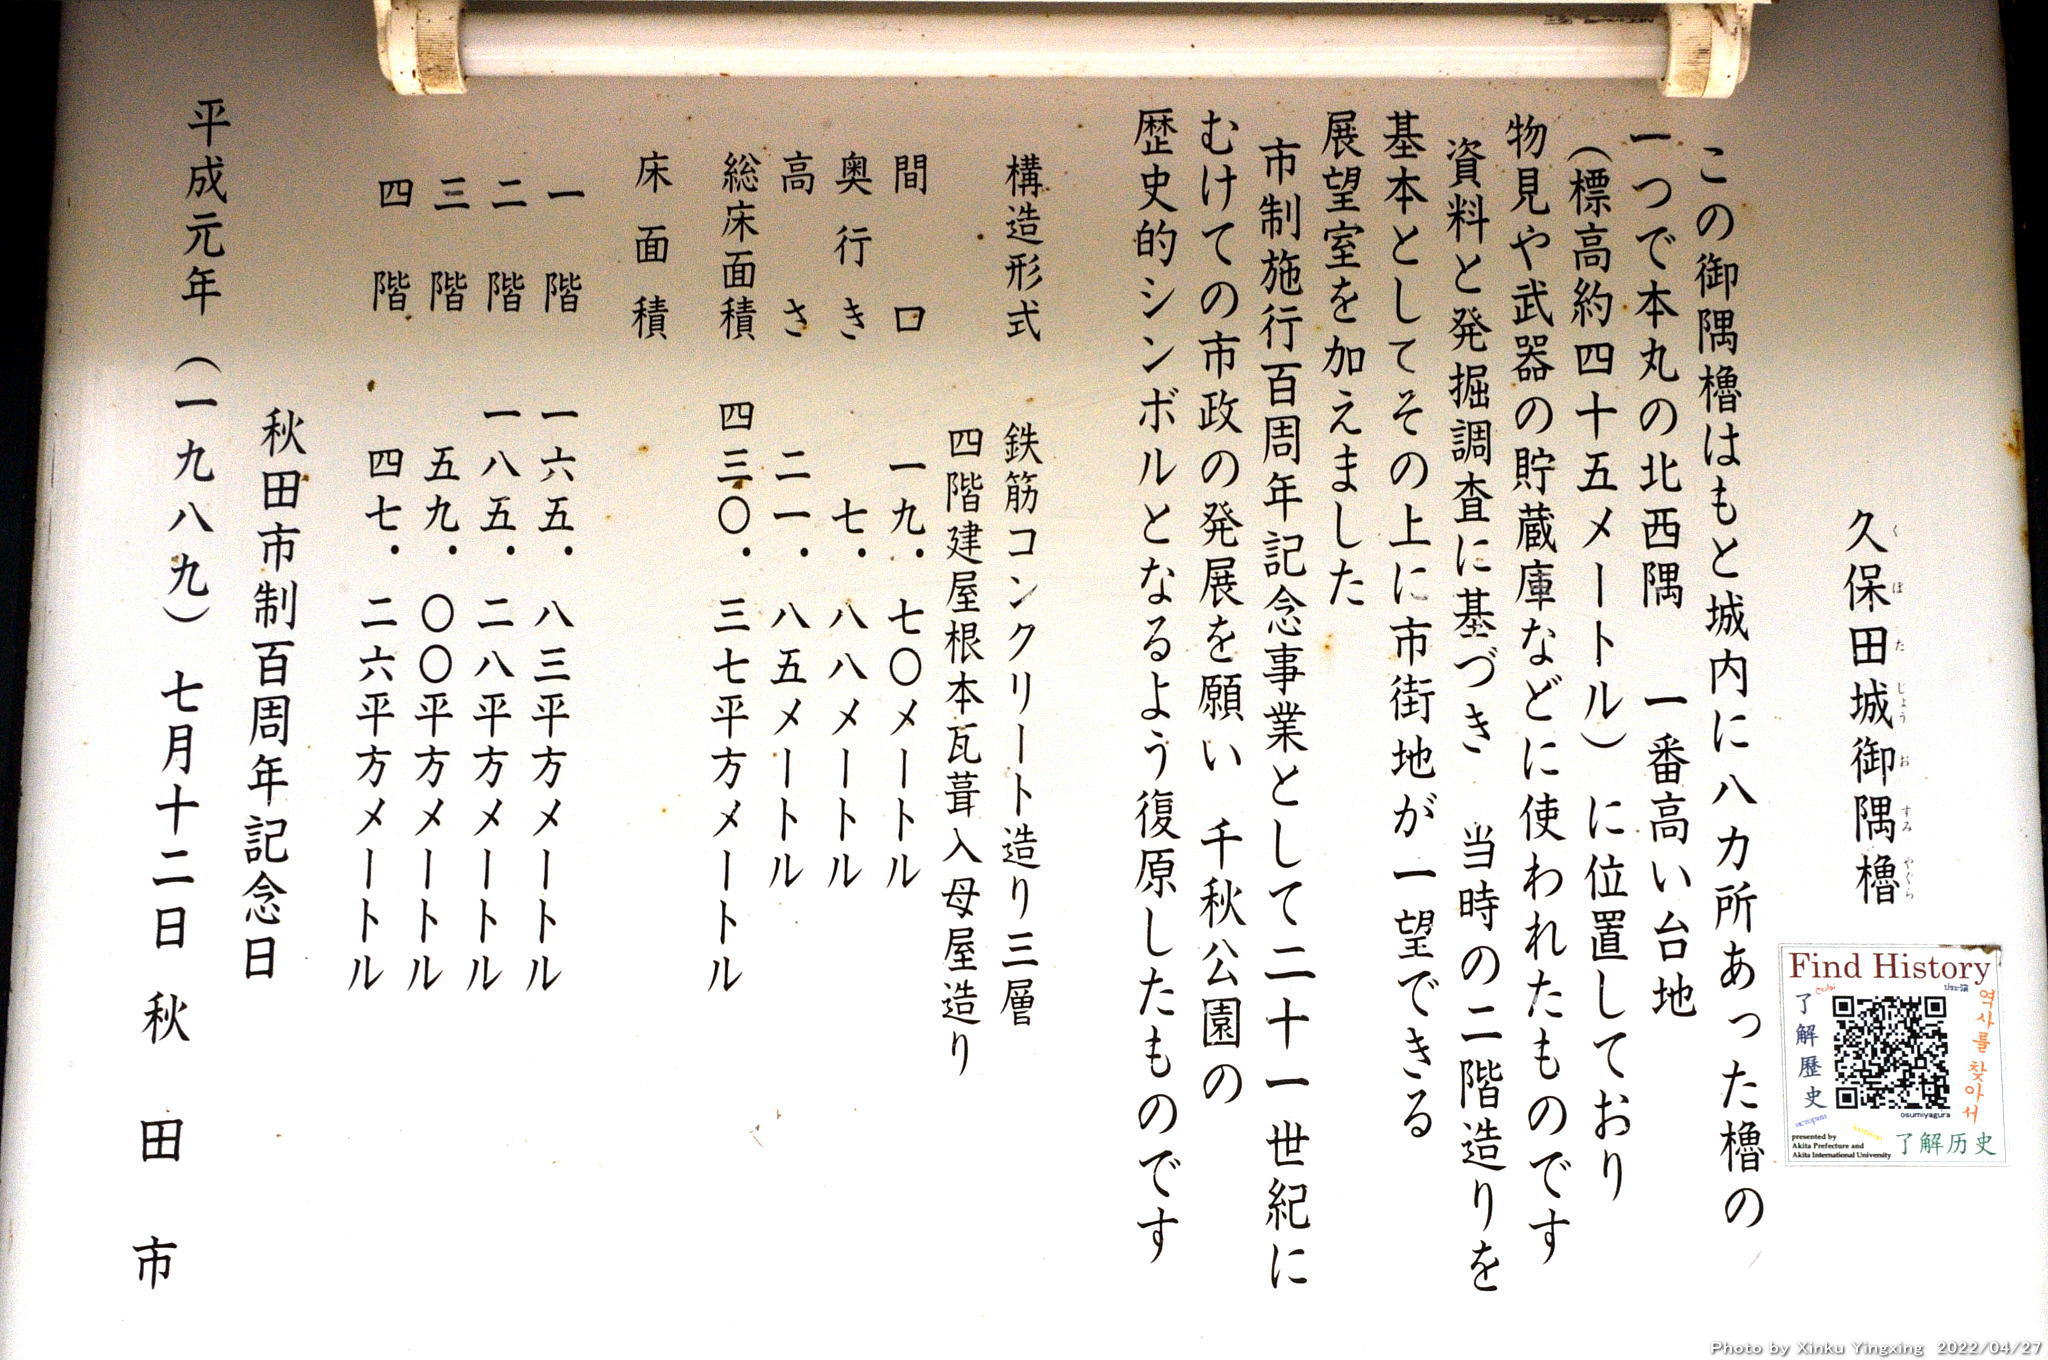 久保田城御隅櫓
くぼたじょうおすみやぐら
この御隅櫓はもと城内に八カ所あった櫓の
一つで本丸の北西隅 一番高い台地
(標高約四十五メートル)に位置しており
物見や武器の貯蔵庫などに使われたものです
資料と発掘調査に基づき 当時の二階造りを
基本としてその上に市街地が一望できる
展望室を加えました
市制施行百周年記念事業として二十一世紀に
むけての市政の発展を願い 千秋公園の
歴史的シンボルとなるよう復原したものです
構造形式 鉄筋コンクリート造り三層
四階建屋根本瓦葺入母屋造り
間口 一九・七〇メートル
奥行き 七・八八メートル
高さ 二一・八五メートル
総床面積 四三〇・三七平方メートル
床面積
一階 一六五・八三平方メートル
二階 一八五・二八平方メートル
三階 五九・〇〇平方メートル
四階 四七・二六平方メートル
秋田市制百周年記念日
平成元年(一九八九)七月十二日 秋田市
Find History
了解歷史
역사를 찾아서
osumiyagura
presented by
Akita Prefecture and
Akita International University
了解历史
Photo by Xinku Yingxing 2022/04/27